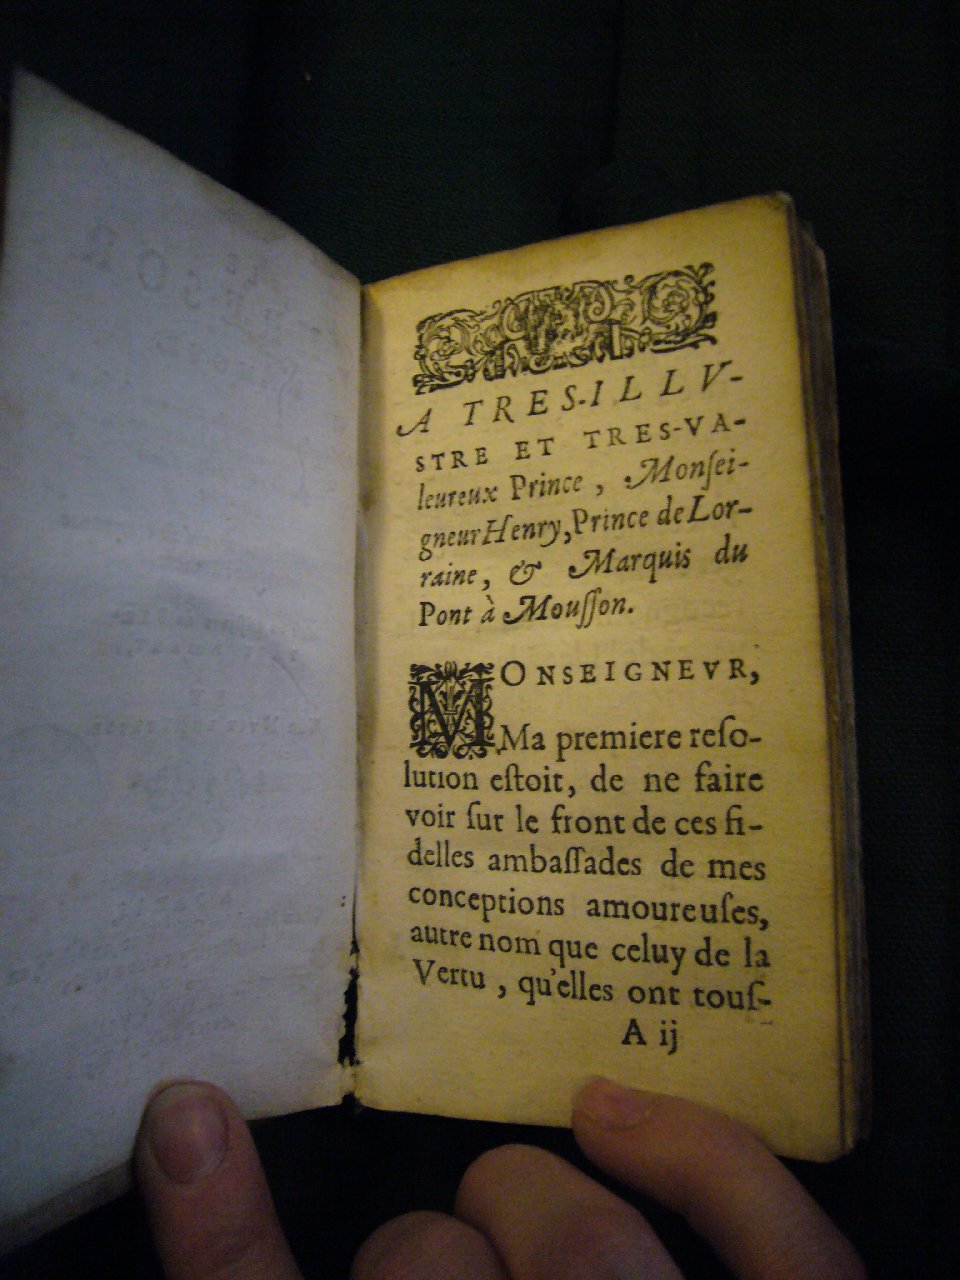 A TRES-ILLV-
STRE ET TRES-VA-
leureux Prince, Monſei-
gneur Henry, Prince de Lor-
raine, & Marquis du
Pont à Mouſſon.
MONSEIGNEVR,
Ma premiere reſo-
lution eſtoit, de ne faire
voir ſur le front de ces fi-
delles ambaſſades de mes
conceptions amoureuſes,
autre nom que celuy de la
Vertu, qu'elles ont touſ-
A ij